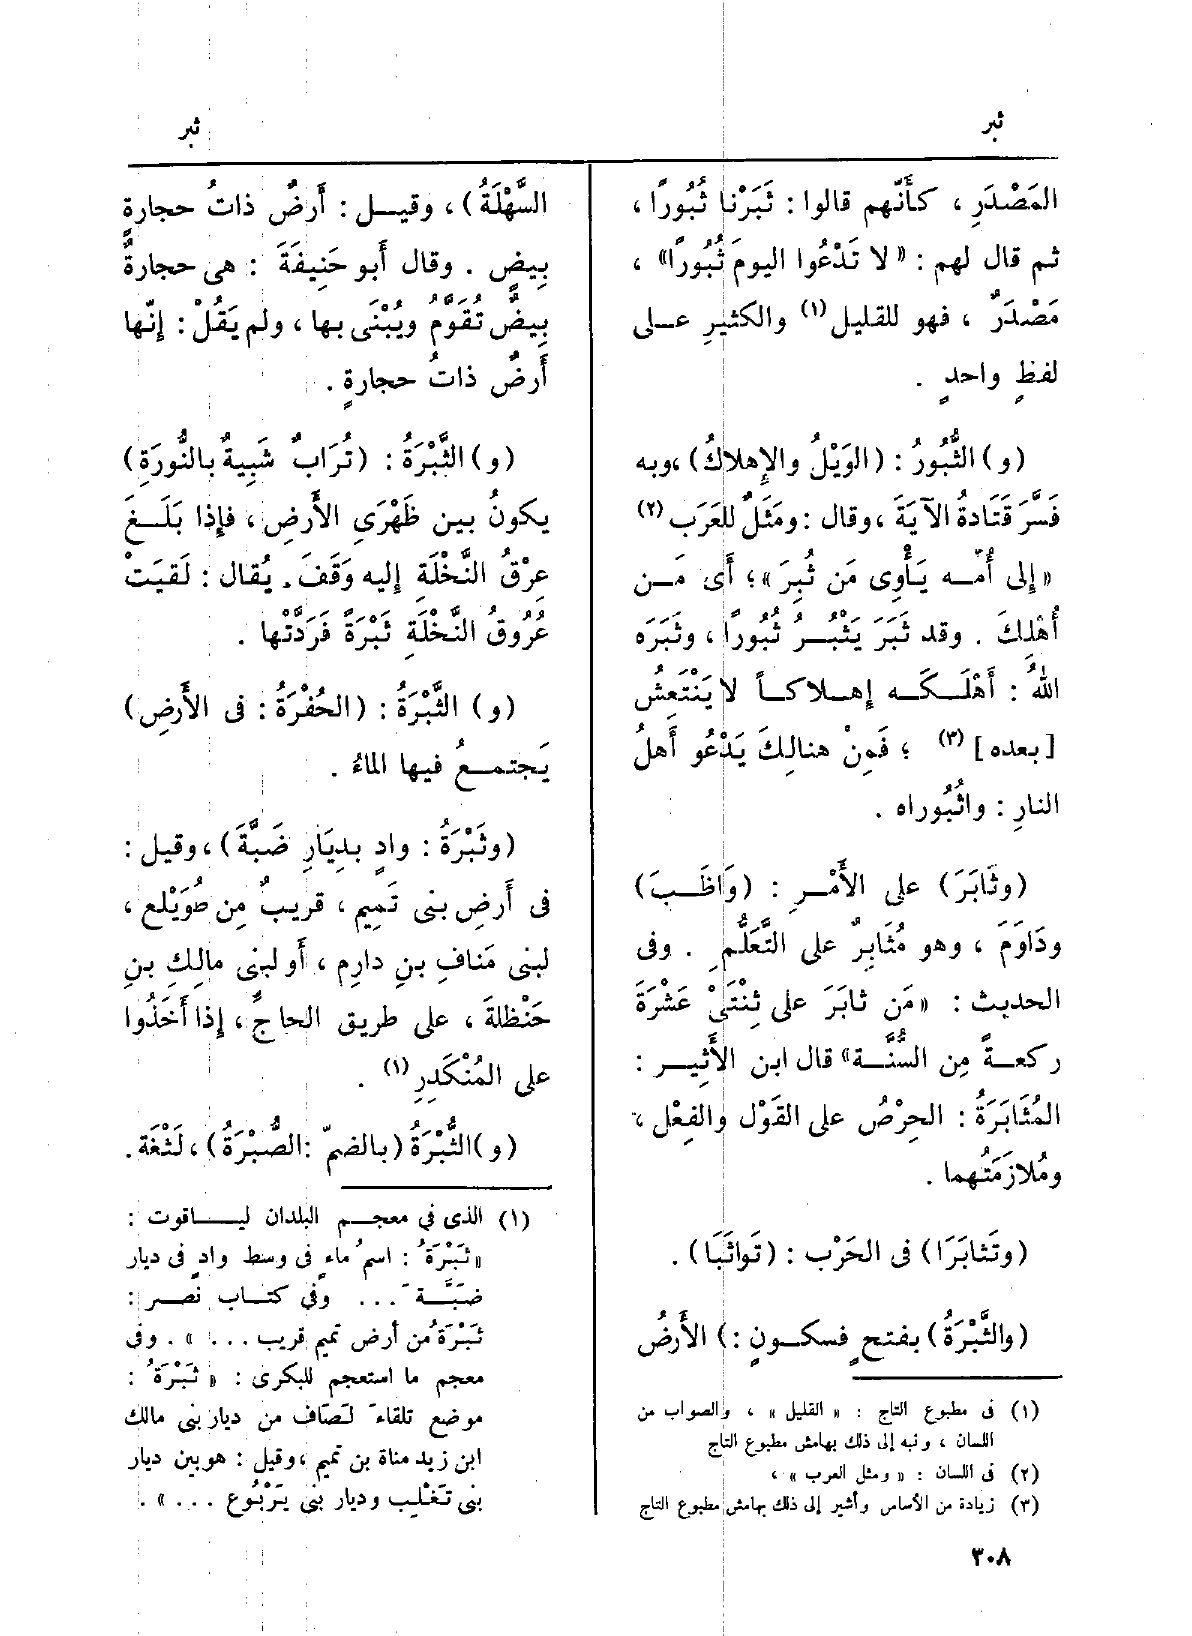 ثبر
ثبر
المَصْدَرِ ، كأَنّهم قالوا : ثَبَرْنا ثُبُورًا ،
ثم قال لهم : « لا تَدْعُوا اليومَ ثُبُورًا» ،
مَصْدَرٌ ، فهو للقليل (١) والكثيرِ عـلى
لفظٍ واحدٍ .
(و) الثُّبُورُ : (الوَيْلُ والإِهلاكُ) ،وبه
فَسَّرَ قَتَادَةُ الآيَةَ ، وقال : ومَثَلٌ للعَرَب (٢)
« إلى أُمّـه يَأْوِى مَن ثُبِرَ » ؛ أَى مَـن
أُهْلِكَ . وقد ثَبَرَ يَثْبُـرُ ثُبُورًا ، وثَبَرَه
اللهُ : أَهْلَـكَـه إهـلاكـاً لا يَنْتَعِشُ
[بعده] (٣) ؛ فَمِنْ هنالِكَ يَدْعُو أَهلُ
النارِ : واثُبُوراه .
(وثابَرَ) على الأَمْـرِ : (وَاظَـبَ)
ودَاوَمَ ، وهو مُثَابِرٌ على التَّعَلُّمِ . وفى
الحديث : «مَن ثابَرَ على ثِنْتَىْ عَشْرَةَ
ركعـةً مِن السُّنَّة» قال ابن الأَثِيـر :
المُثَابَرَةُ : الحِرْصُ على القَوْل والفِعْل ،
ومُلازَمَتُهما .
(وتَثابَرَا) فى الحَرْب : (تَواثَبَا) .
(والثَّبْرَةُ) بفتحٍ فسكـونٍ :) الأَرضُ
(١) فى مطبوع التاج : « القليل » ، والصواب من
اللسان ، ونبه إلى ذلك بهامش مطبوع التاج
(٢) فى اللسان : « ومثل العرب » ،
(٣) زيادة من الأساس وأشير إلى ذلك بهامش مطبوع التاج
السَّهْلَةُ) ، وقيـل : أَرضٌ ذاتُ حجارةٍ
بِيضٍ . وقال أَبو حَنِيفَةَ : هى حجارةٌ
بِيضٌ تُقَوَّمُ ويُبْنَى بها ، ولم يَقُلْ : إنّها
أَرضٌ ذاتُ حجارةٍ .
(و) الثَّبْرَةُ : (تُرَابٌ شَبِيهٌ بالنُّورَةِ)
يكونُ بين ظَهْرَىِ الأَرضِ ، فإذا بَلَـغَ
عِرْقُ النَّخْلَةِ إليه وَقَفَ . يُقال : لَقِيَتْ
عُرُوقُ النَّخْلَةِ ثَبْرَةً فَرَدَّتْها .
(و) الثَّبْرَةُ : (الحُفْرَةُ : فى الأَرضِ)
يَجتمـعُ فيها الماءُ .
(وثَبْرَةُ : وادٍ بدِيَارِ ضَبَّةَ) ، وقيل :
فى أَرضِ بنى تَمِيم ، قريبٌ مِن طُوَيْلع ،
لبنى مَنافِ بنِ دارِم ، أَو لبنى مالِكِ بنِ
حَنْظلةَ ، على طريق الحاجِّ ، إذا أَخَذُوا
على المُنْكَدِرِ (١) .
(و) الثُّبْرَةُ (بالضمّ :الصُّبْرَةُ) ، لَثْغَة .
(١) الذى فى معجـم البلدان ليـاقوت :
«ثَبْرَةُ : اسمُ ماءٍ فى وسط وادٍ فى ديار
ضَبَّـة َ ... وفى كتـاب نصـر :
ثَبْرَةُ من أرض تميم قريب ... » . وفى
معجم ما استعجم للبكرى : « ثَبْرَةُ :
موضع تلقاءَ لَصَاف من ديار بنى مالك
ابن زيد مناة بن تميم ، وقيل : هو بين ديار
بنى تَغْلِب وديار بنى يَرْبُوع ... » .
٣٠٨